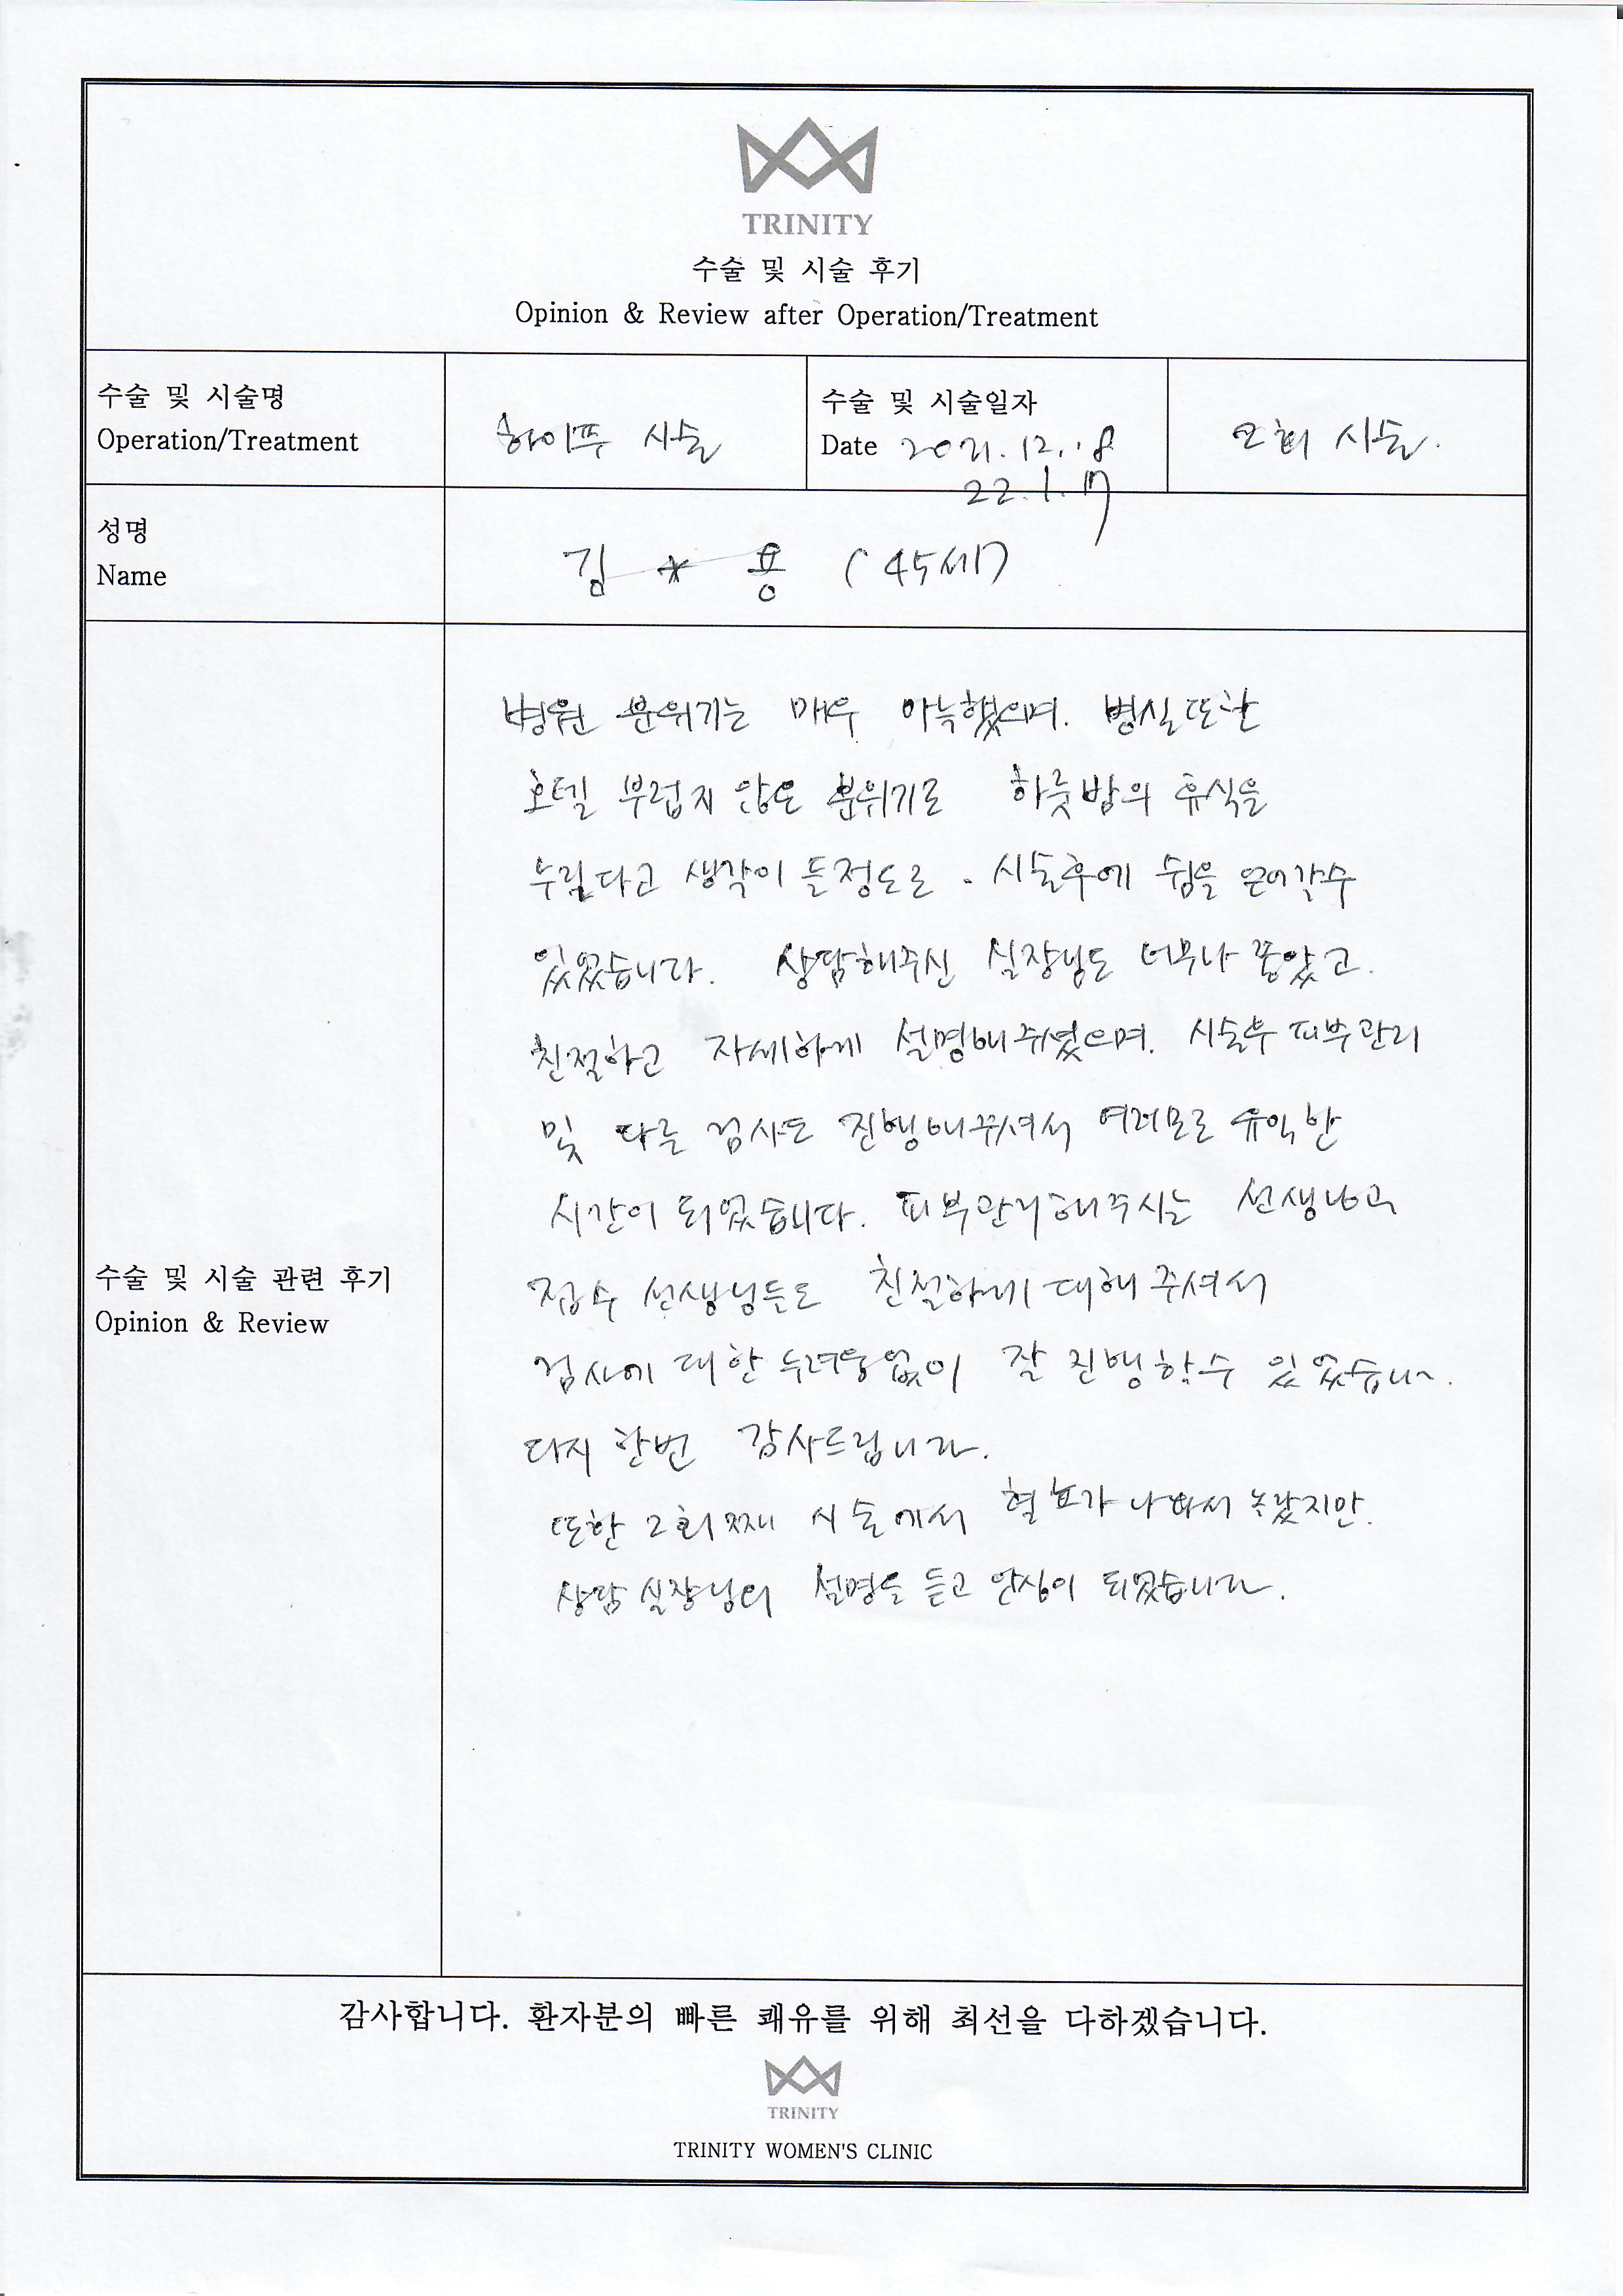 TRINITY
수술 및 시술 후기
Opinion & Review after Operation/Treatment
수술 및 시술명
Operation/Treatment
하이푸 시술
수술 및 시술일자
Date 2021.12.18
22.1.17
2회 시술.
성명
Name
김 * 용 (45세)
수술 및 시술 관련 후기
Opinion & Review
병원 분위기는 매우 아늑했으며. 병실또한
호텔 부럽지 않은 분위기로 하룻밤의 휴식을
누린다고 생각이 들정도로. 시술후에 쉼을 얻어갈수
있었습니다. 상담해주신 실장님도 너무나 좋았고.
친절하고 자세하게 설명해주셨으며. 시술후 피부관리
및 다른 검사도 진행해주셔서 여러모로 유익한
시간이 되었습니다. 피부관리해주시는 선생님과
접수 선생님들도 친절하게 대해 주셔서
검사에 대한 두려움없이 잘 진행할수 있었습니~.
다시 한번 감사드립니다.
또한 2회째 시술에서 혈뇨가 나와서 놀랐지만.
상담 실장님의 설명을 듣고 안심이 되었습니다.
감사합니다. 환자분의 빠른 쾌유를 위해 최선을 다하겠습니다.
TRINITY
TRINITY WOMEN'S CLINIC